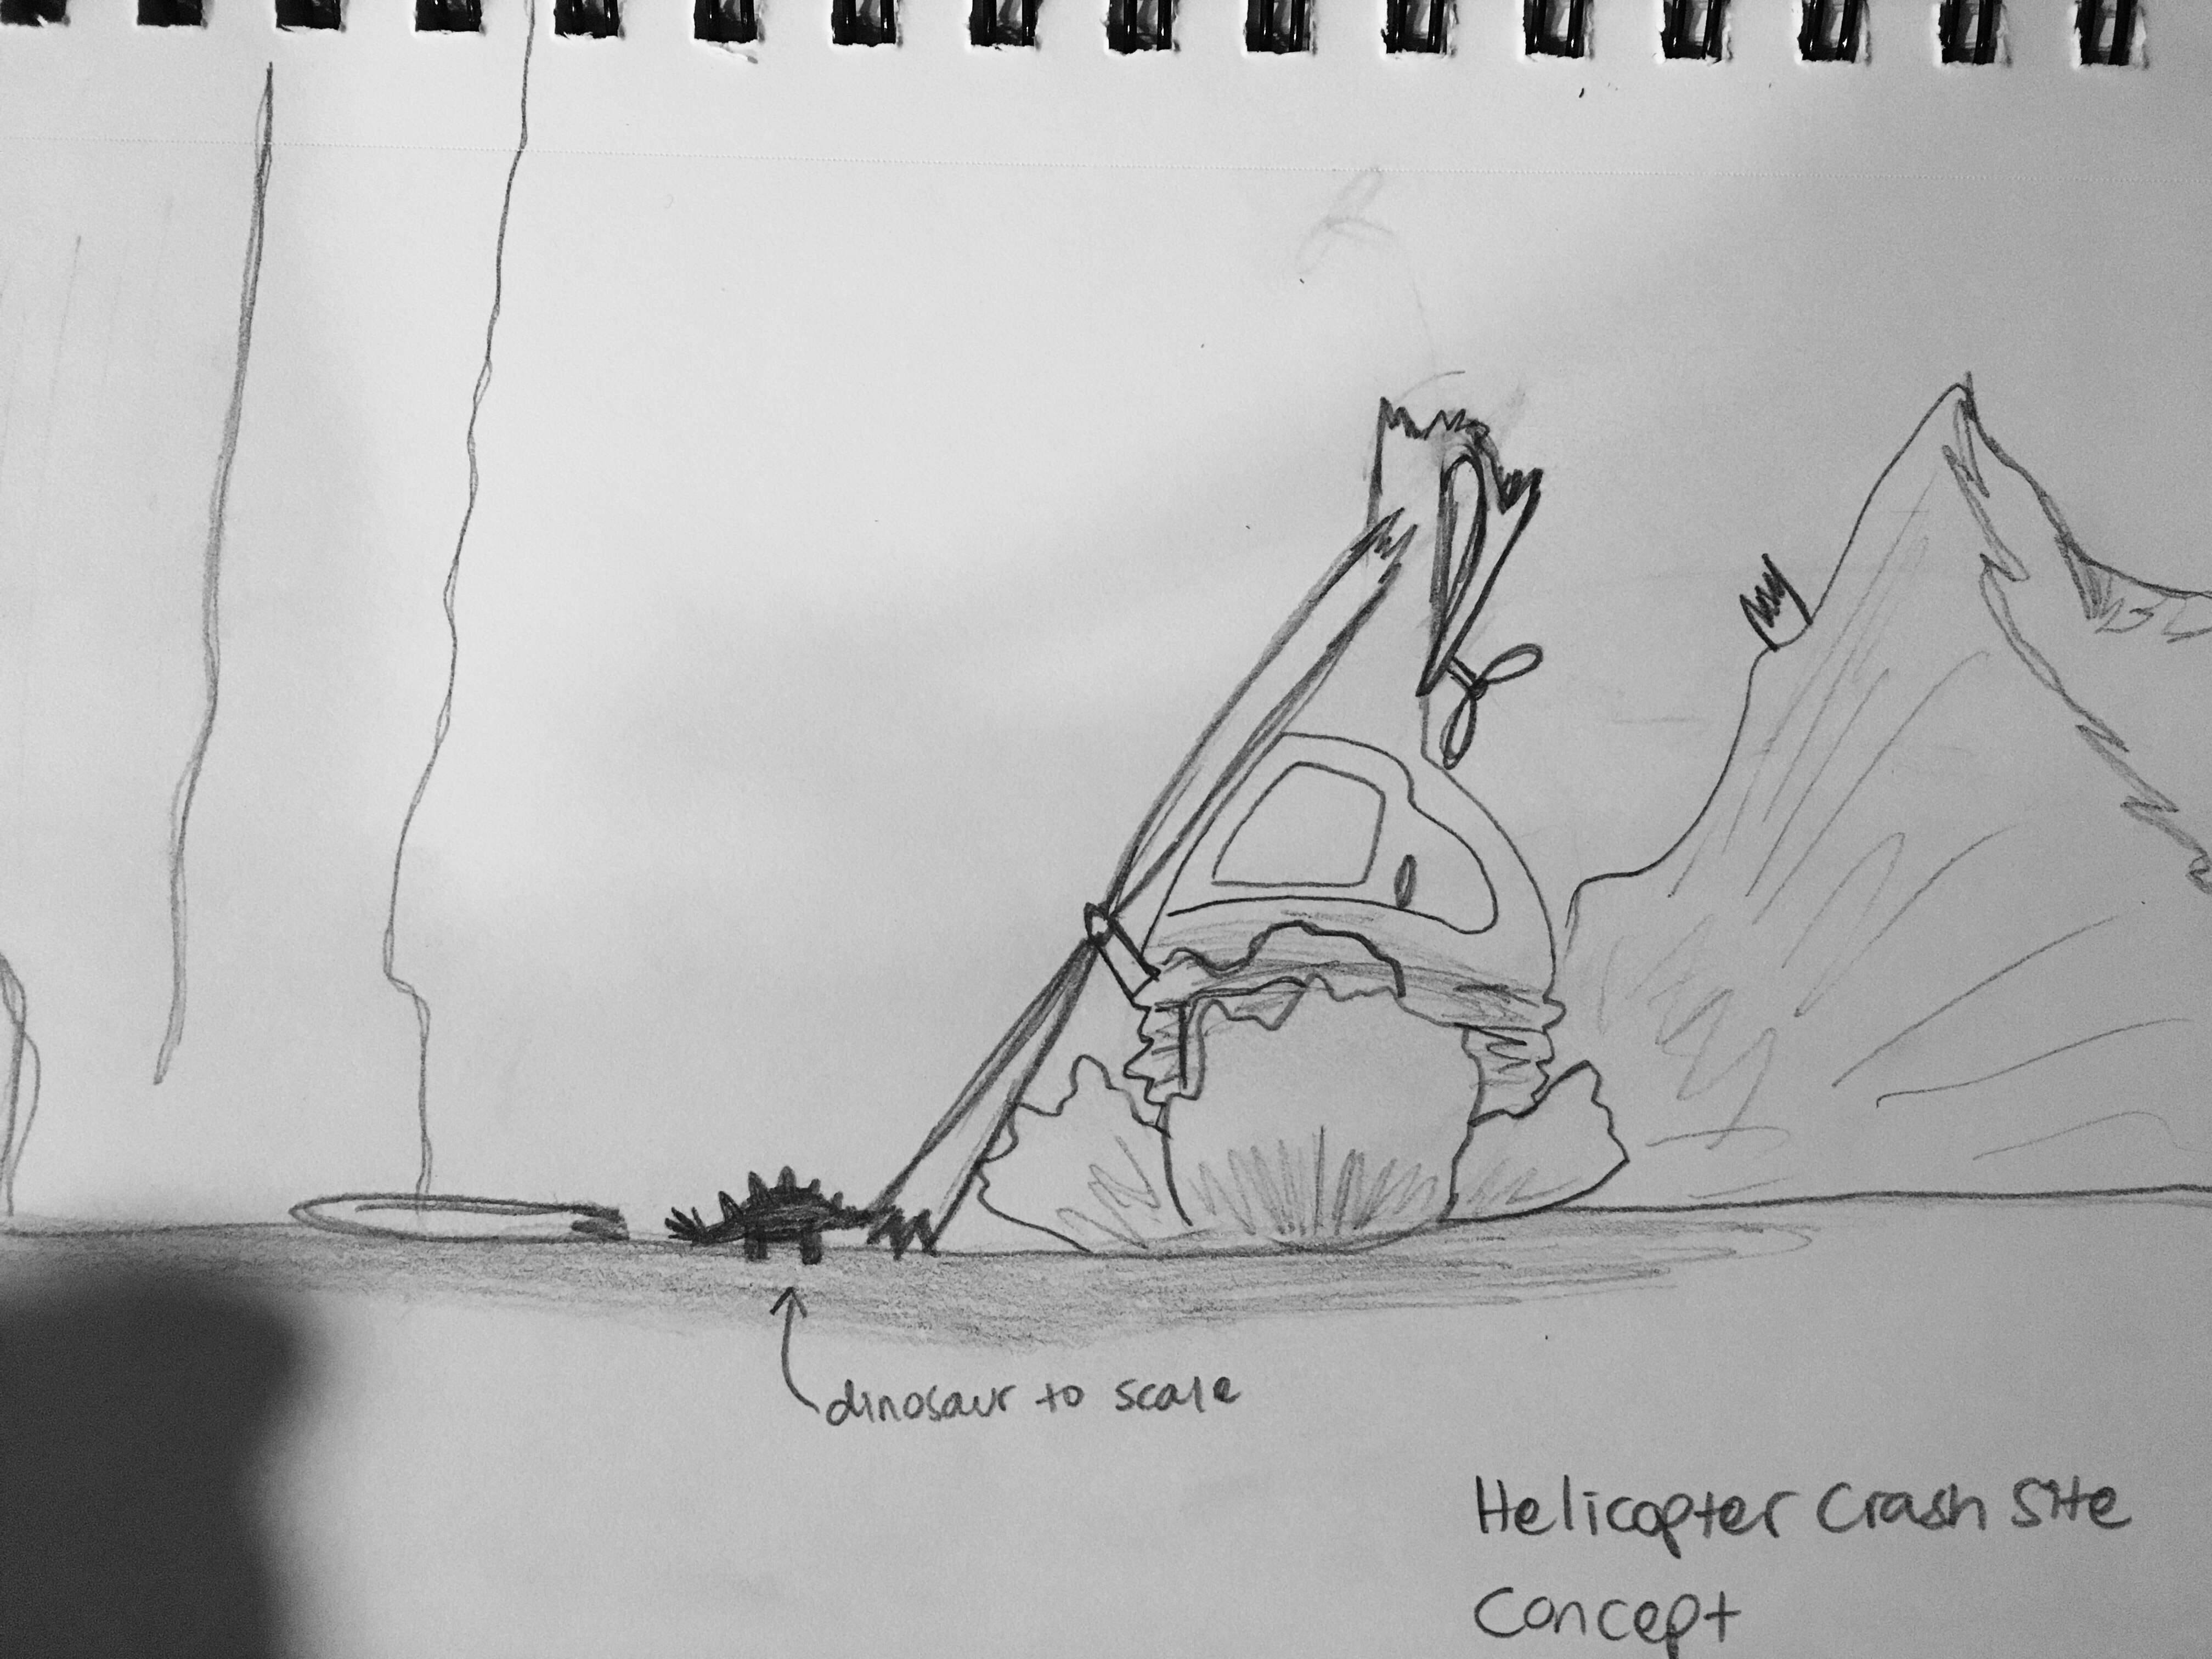 dinosaur to scale
Helicopter Crash Site
Concept